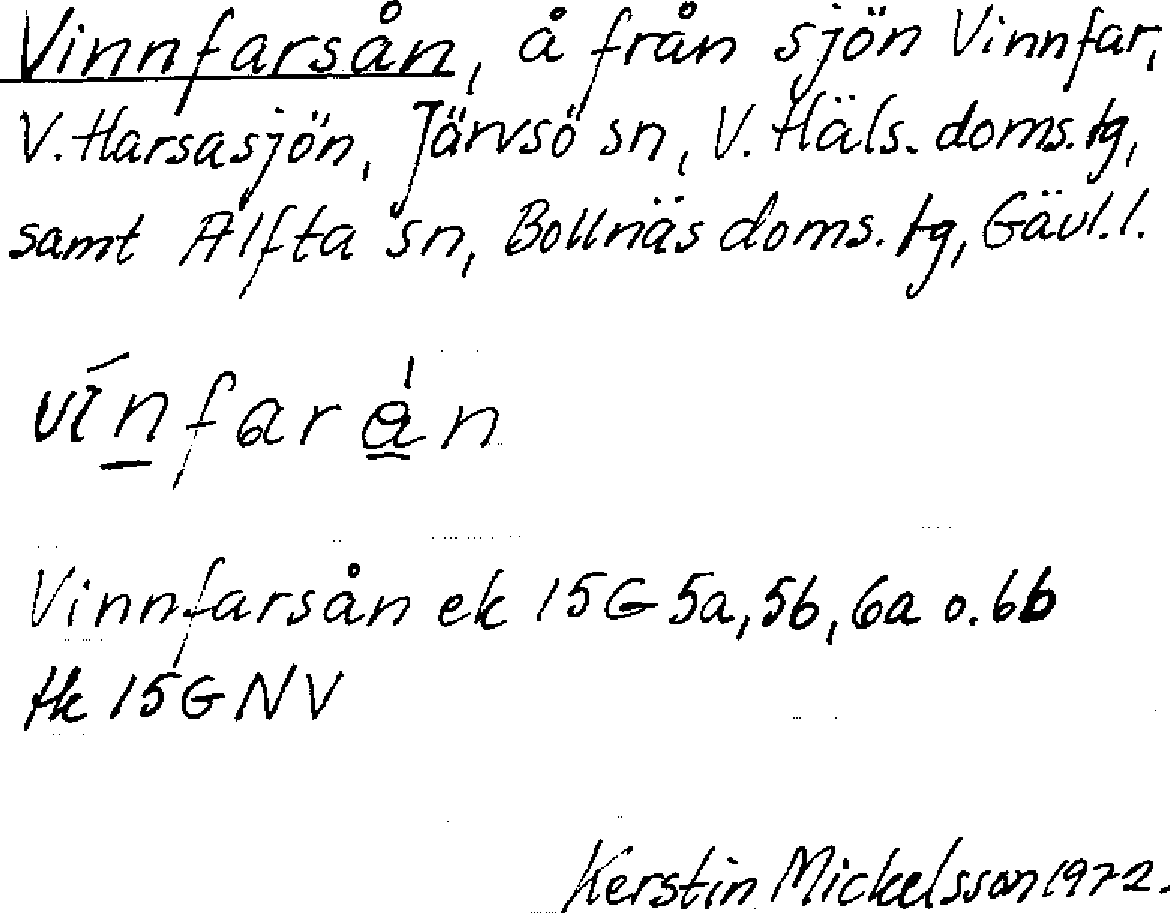 Vinnfarsån, å från sjön Vinnfar,
V. Harsasjön, Järvsö sn, V. Häls. doms. tg,
samt Alfta sn, Bollnäs doms. tg, Gävl. l.
vɪ́nfarån
Vinnfarsån ek 15G 5a, 5b, 6a o. 6b
tk 15G NV
Kerstin Mickelsson 1972.